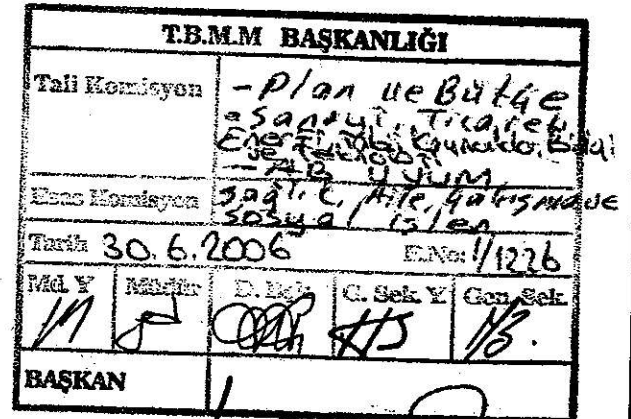 T.B.M.M BAŞKANLIĞI
Tali Komisyon
- Plan ve Bütçe
- Sanayi, Ticaret,
Enerji, Tabii Kaynaklar, Bilgi
ve Teknoloji
- AB UYUM
Esas Komisyon
Sağlık, Aile, Çalışma ve
Sosyal işler
Tarih 30.6.2006 E.No: 1/1226
Md. Y Müdür G. Sek. Y. Gen. Sek.
BAŞKAN